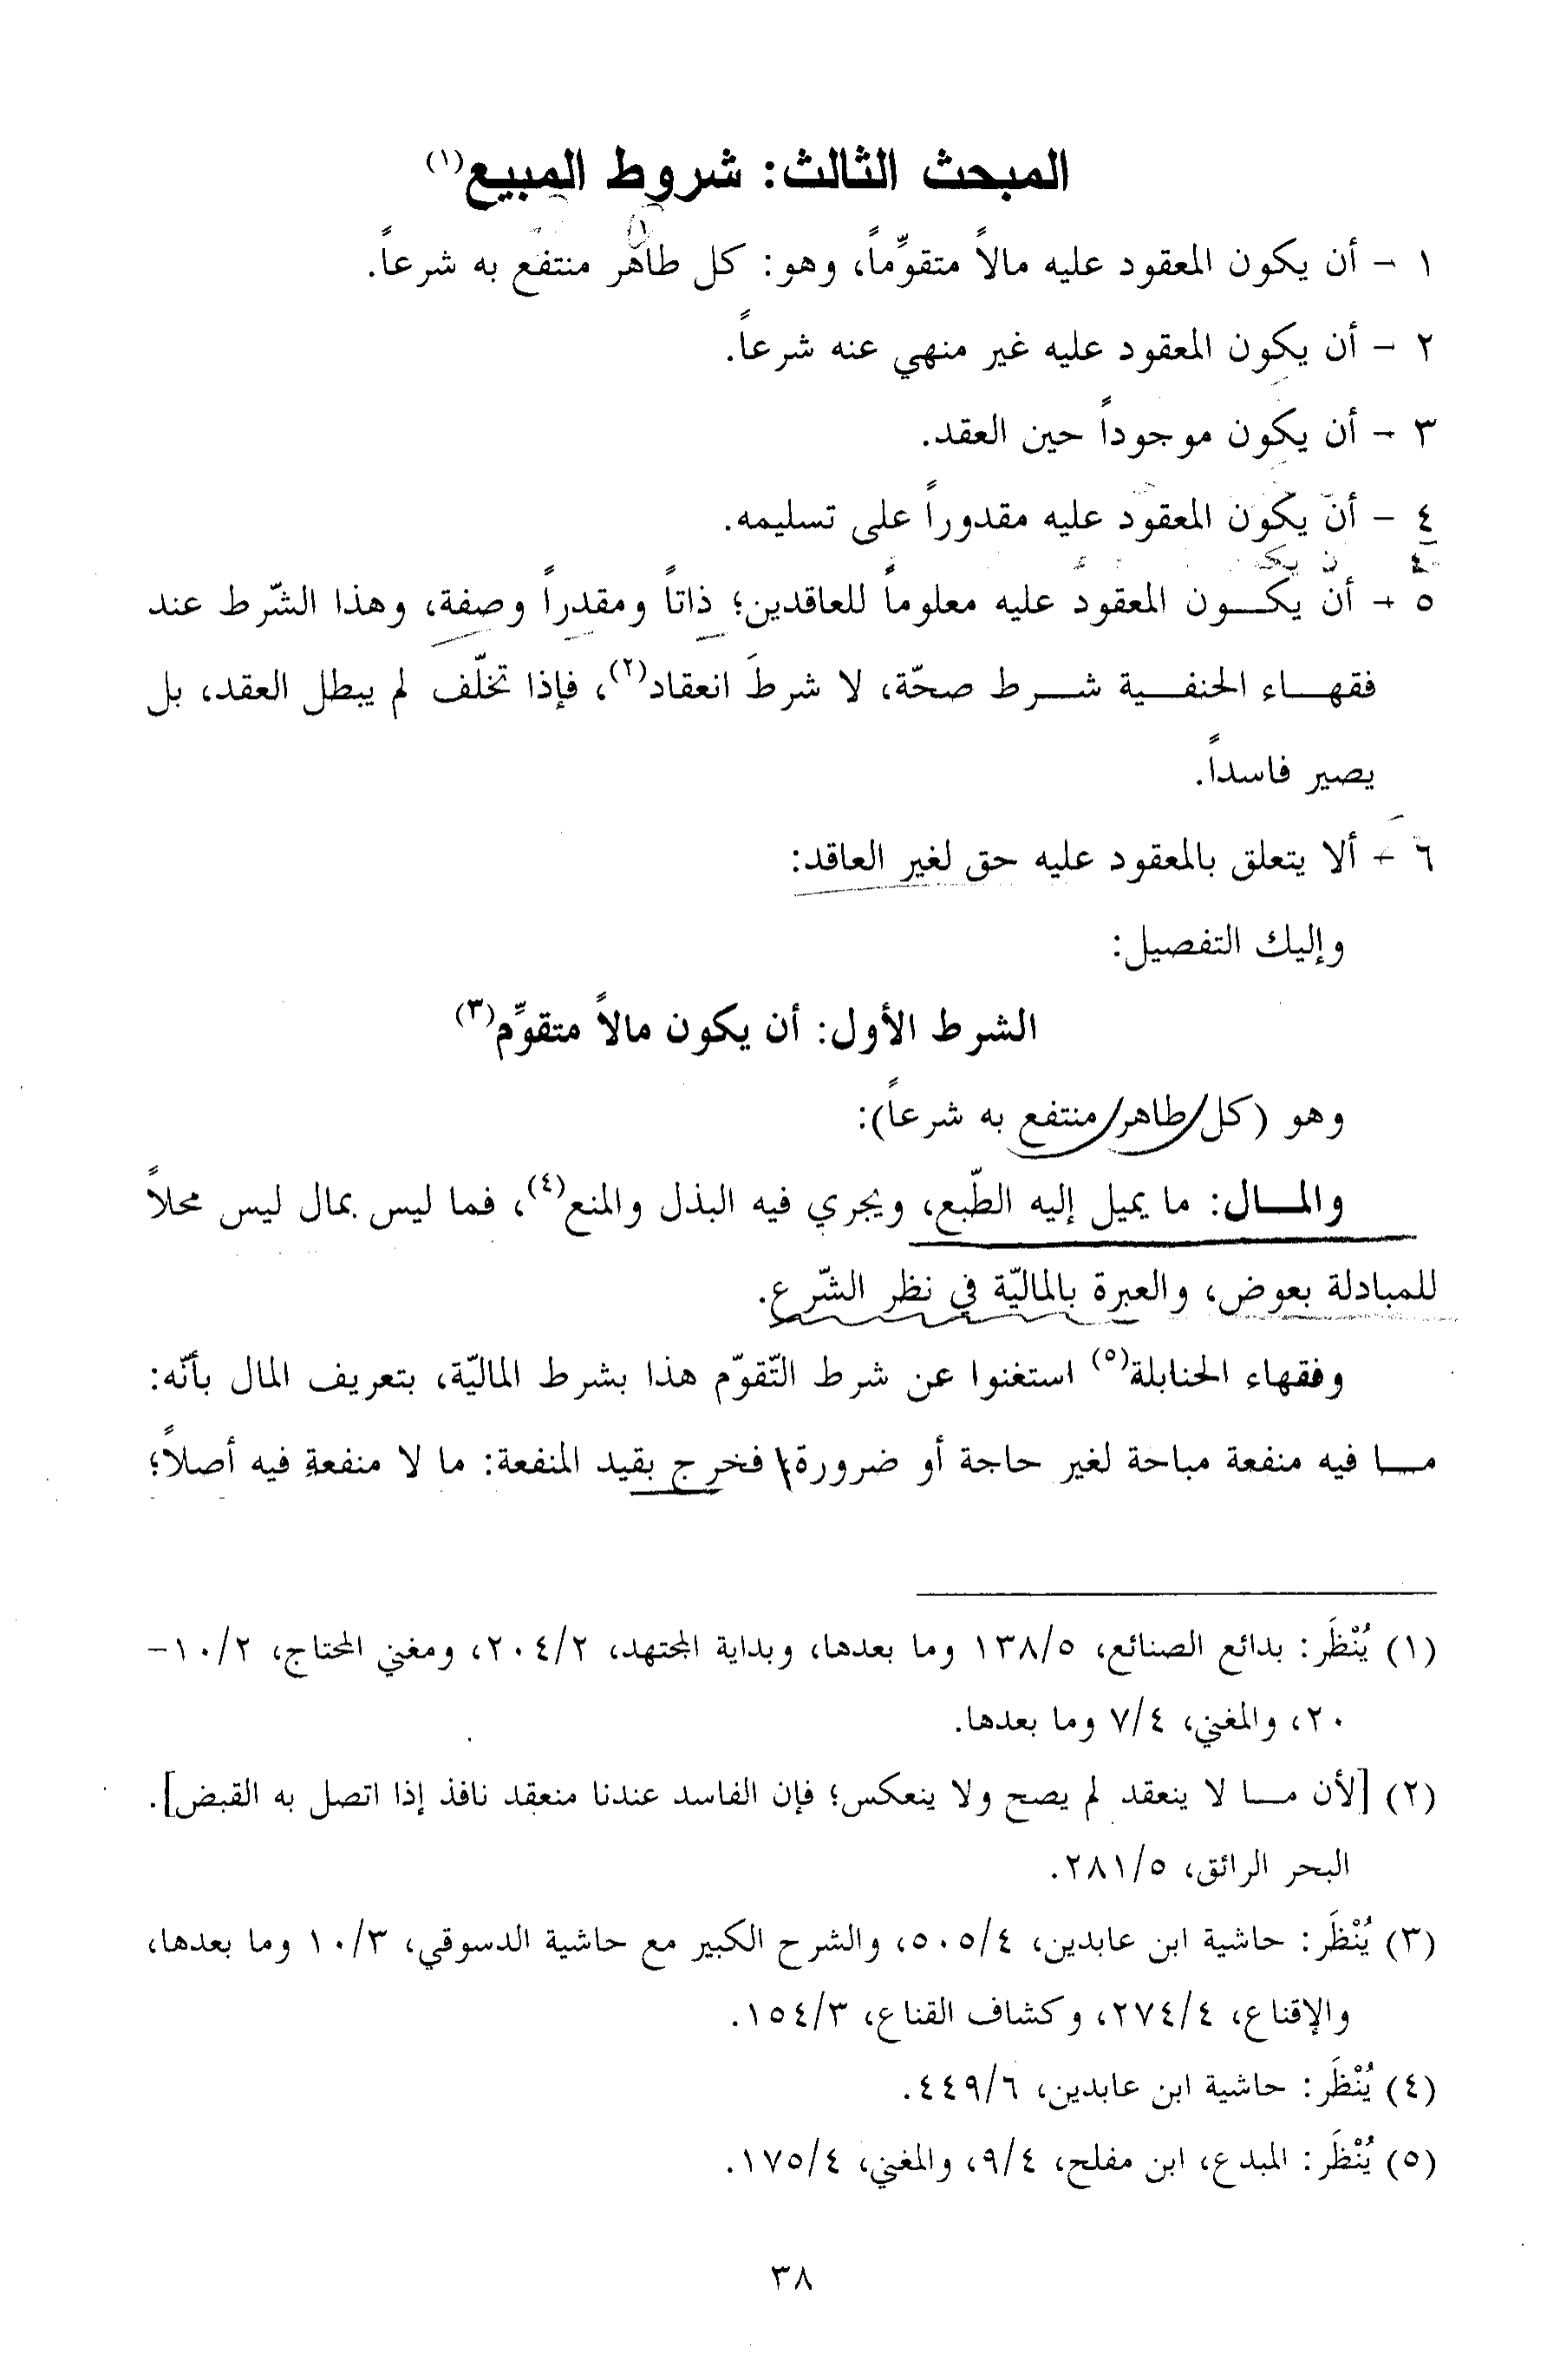 المبحث الثالث: شروط المبيع(١)
١ - أن يكون المعقود عليه مالاً متقوِّماً، وهو: كل طاهر منتفع به شرعاً.
٢ - أن يكون المعقود عليه غير منهي عنه شرعاً.
٣ - أن يكون موجوداً حين العقد.
٤ - أن يكون المعقود عليه مقدوراً على تسليمه.
٥ - أن يكون المعقود عليه معلوماً للعاقدين؛ ذاتاً ومقدراً وصفة، وهذا الشّرط عند
فقهاء الحنفية شرط صحّة، لا شرطَ انعقاد(٢)، فإذا تخلّف لم يبطل العقد، بل
يصير فاسداً.
٦ - ألا يتعلق بالمعقود عليه حق لغير العاقد:
وإليك التفصيل:
الشرط الأول: أن يكون مالاً متقوِّم(٣)
وهو (كل طاهر منتفع به شرعاً):
والمال: ما يميل إليه الطّبع، ويجري فيه البذل والمنع(٤)، فما ليس بمال ليس محلاً
للمبادلة بعوض، والعبرة بالماليّة في نظر الشّرع.
وفقهاء الحنابلة(٥) استغنوا عن شرط التّقوّم هذا بشرط الماليّة، بتعريف المال بأنّه:
ما فيه منفعة مباحة لغير حاجة أو ضرورة، فخرج بقيد المنفعة: ما لا منفعة فيه أصلاً؛
(١) يُنْظَر: بدائع الصنائع، ١٣٨/٥ وما بعدها، وبداية المجتهد، ٢٠٤/٢، ومغني المحتاج، ١٠/٢-
٢٠، والمغني، ٧/٤ وما بعدها.
(٢) [لأن ما لا ينعقد لم يصح ولا ينعكس؛ فإن الفاسد عندنا منعقد نافذ إذا اتصل به القبض].
البحر الرائق، ٢٨١/٥.
(٣) يُنْظَر: حاشية ابن عابدين، ٥٠٥/٤، والشرح الكبير مع حاشية الدسوقي، ١٠/٣ وما بعدها،
والإقناع، ٢٧٤/٤، وكشاف القناع، ١٥٤/٣.
(٤) يُنْظَر: حاشية ابن عابدين، ٤٤٩/٦.
(٥) يُنْظَر: المبدع، ابن مفلح، ٩/٤، والمغني، ١٧٥/٤.
٣٨